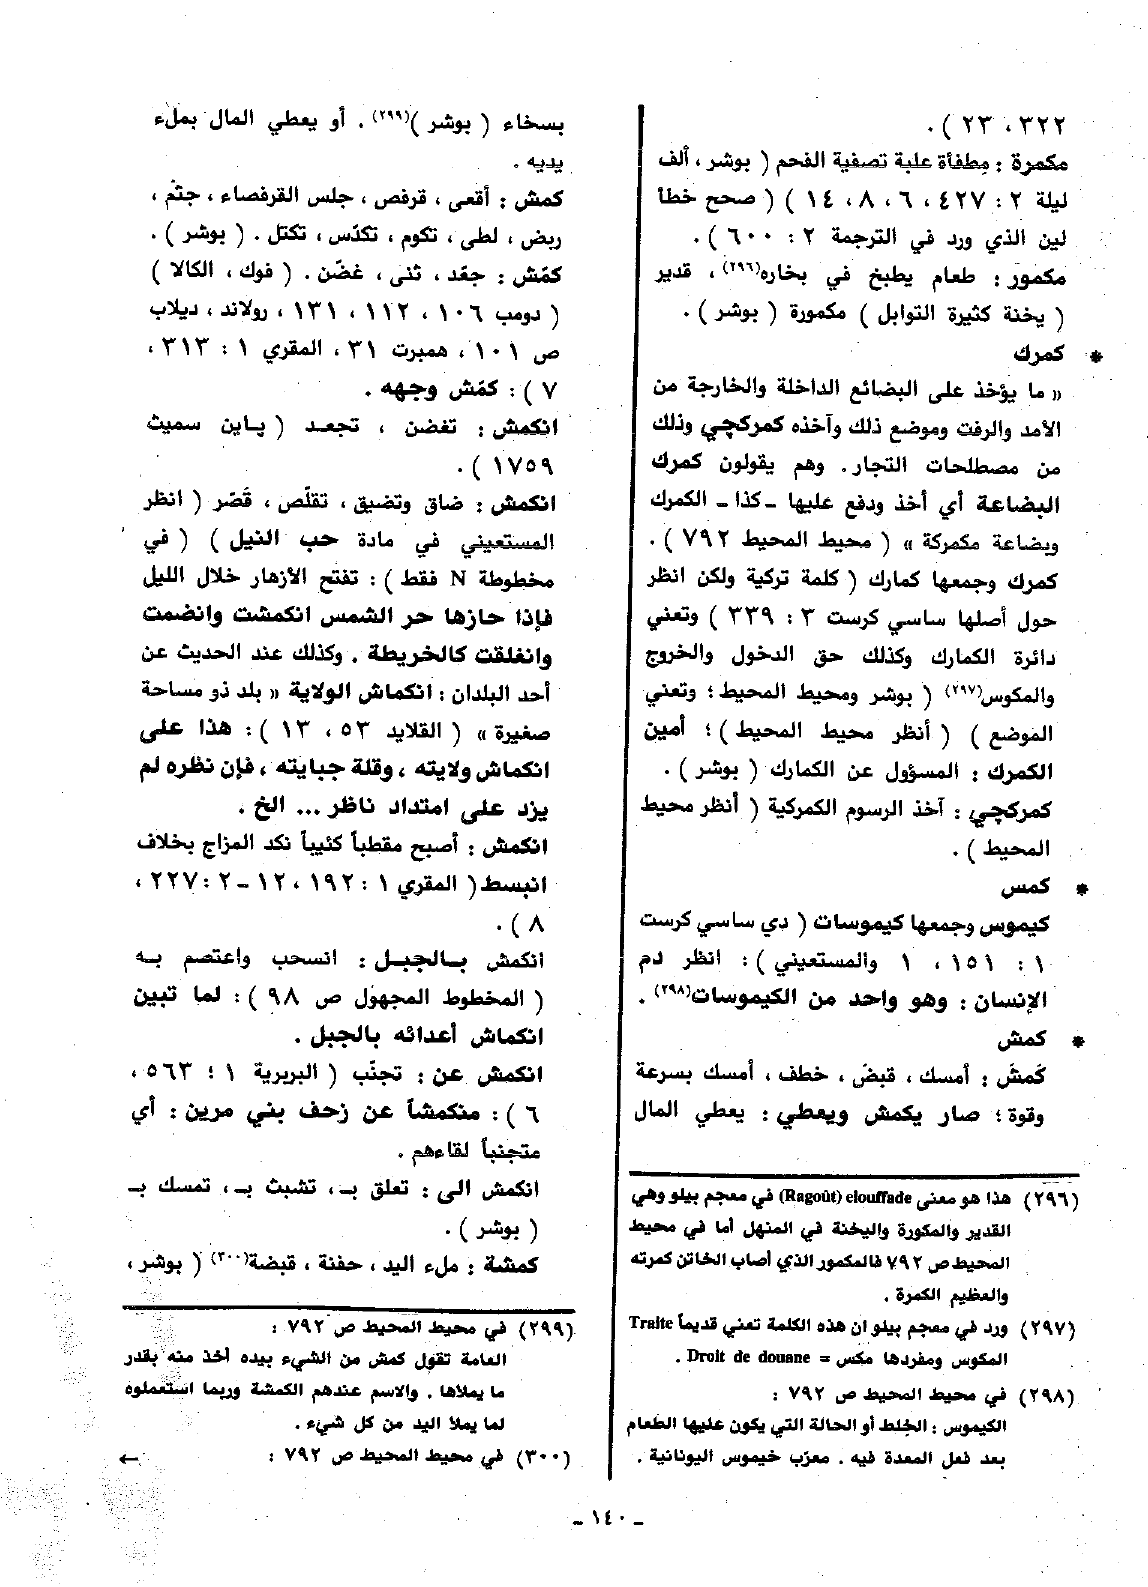 ٣٢٢، ٢٣ ).
مكمرة : مِطفأة علبة تصفية الفحم ( بوشر ، ألف
ليلة ٢ : ٤٢٧ ، ٦ ، ٨ ، ١٤ ) ( صحح خطأ
لين الذي ورد في الترجمة ٢ : ٦٠٠ ).
مكمور : طعام يطبخ في بخاره(٢٩٦) ، قدير
( يخنة كثيرة التوابل ) مكمورة ( بوشر ).
* كمرك
« ما يؤخذ على البضائع الداخلة والخارجة من
الأمد والرفت وموضع ذلك وآخذه كمركچي وذلك
من مصطلحات التجار. وهم يقولون كمرك
البضاعة أي أخذ ودفع عليها ـ كذا ـ الكمرك
وبضاعة مكمركة » ( محيط المحيط ٧٩٢ ).
كمرك وجمعها كمارك ( كلمة تركية ولكن انظر
حول أصلها ساسي كرست ٣ : ٣٣٩ ) وتعني
دائرة الكمارك وكذلك حق الدخول والخروج
والمكوس(٢٩٧) ( بوشر ومحيط المحيط ؛ وتعني
الموضع ) ( أنظر محيط المحيط ) ؛ أمين
الكمرك : المسؤول عن الكمارك ( بوشر ).
كمركچي : آخذ الرسوم الكمركية ( أنظر محيط
المحيط ).
* كمس
كيموس وجمعها كيموسات ( دي ساسي كرست
١ : ١٥١ ، ١ والمستعيني ) : انظر دم
الإنسان : وهو واحد من الكيموسات(٢٩٨) .
* كمش
كَمشَ : أمسك ، قبض ، خطف ، أمسك بسرعة
وقوة ؛ صار يكمش ويعطي : يعطي المال
(٢٩٦) هذا هو معنى elouffade (Ragoût) في معجم بيلو وهي
القدير والمكورة واليخنة في المنهل أما في محيط
المحيط ص ٧٩٢ فالمكمور الذي أصاب الخاتن كمرته
والعظيم الكمرة .
(٢٩٧) ورد في معجم بيلو ان هذه الكلمة تعني قديماً Traite
المكوس ومفردها مكس = Droit de douane .
(٢٩٨) في محيط المحيط ص ٧٩٢ :
الكيموس : الخلط أو الحالة التي يكون عليها الطعام
بعد فعل المعدة فيه . معرّب خيموس اليونانية .
بسخاء ( بوشر )(٢٩٩) . أو يعطي المال بملء
يديه .
كمش : أقعى ، قرفص ، جلس القرفصاء ، جثم ،
ربض ، لطى ، تكوم ، تكدّس ، تكتل . ( بوشر ).
كمّش : جعّد ، ثنى ، غضّن . ( فوك ، الكالا )
( دومب ١٠٦ ، ١١٢ ، ١٣١ ، رولاند ، ديلاب
ص ١٠١ ، همبرت ٣١ ، المقري ١ : ٣١٣ ،
٧ ) : كمّش وجهه .
انكمش : تغضن ، تجعد ( پاين سميث
١٧٥٩ ).
انكمش : ضاق وتضيق ، تقلّص ، قَصّر ( انظر
المستعيني في مادة حب النيل ) ( في
مخطوطة N فقط ) : تفتح الأزهار خلال الليل
فإذا حازها حر الشمس انكمشت وانضمت
وانغلقت كالخريطة . وكذلك عند الحديث عن
أحد البلدان : انكماش الولاية « بلد ذو مساحة
صغيرة » ( القلايد ٥٣ ، ١٣ ) : هذا على
انكماش ولايته ، وقلة جبايته ، فإن نظره لم
يزد على امتداد ناظر ... الخ .
انكمش : أصبح مقطباً كئيباً نكد المزاج بخلاف
انبسط ( المقري ١ : ١٩٢ ، ١٢ - ٢ : ٢٢٧ ،
٨ ).
انكمش بالجبل : انسحب واعتصم به
( المخطوط المجهول ص ٩٨ ) : لما تبين
انكماش أعدائه بالجبل .
انكمش عن : تجنّب ( البربرية ١ : ٥٦٣ ،
٦ ) : منكمشاً عن زحف بني مرين : أي
متجنباً لقاءهم .
انكمش الى : تعلق بـ ، تشبث بـ ، تمسك بـ
( بوشر ).
كمشة : ملء اليد ، حفنة ، قبضة(٣٠٠) ( بوشر ،
(٢٩٩) في محيط المحيط ص ٧٩٢ :
العامة تقول كمش من الشيء بيده أخذ منه بقدر
ما يملاها . والاسم عندهم الكمشة وربما استعملوه
لما يملأ اليد من كل شيء .
(٣٠٠) في محيط المحيط ص ٧٩٢ : ←
ـ ١٤٠ ـ